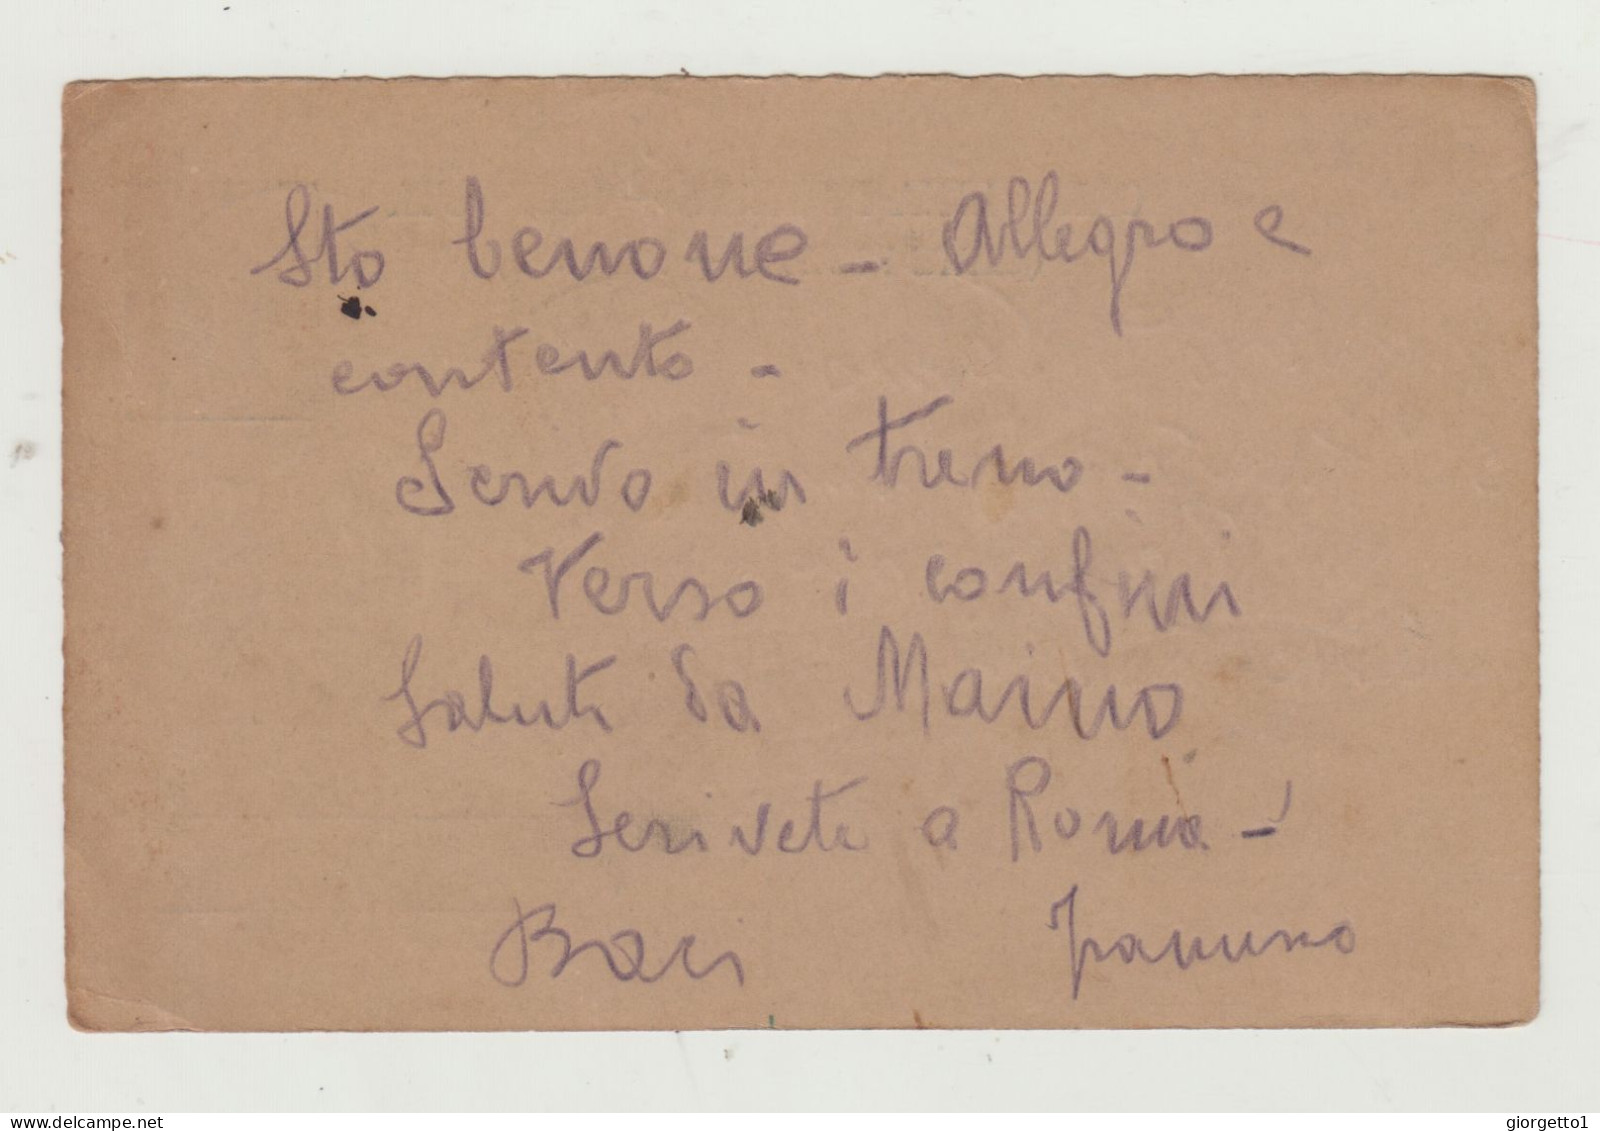 Sto benone - Allegro e
contento -
Scrivo in treno -
Verso i confini
Saluti da Marino
Scrivete a Roma -
Baci
delcampe.net
giorgetto1